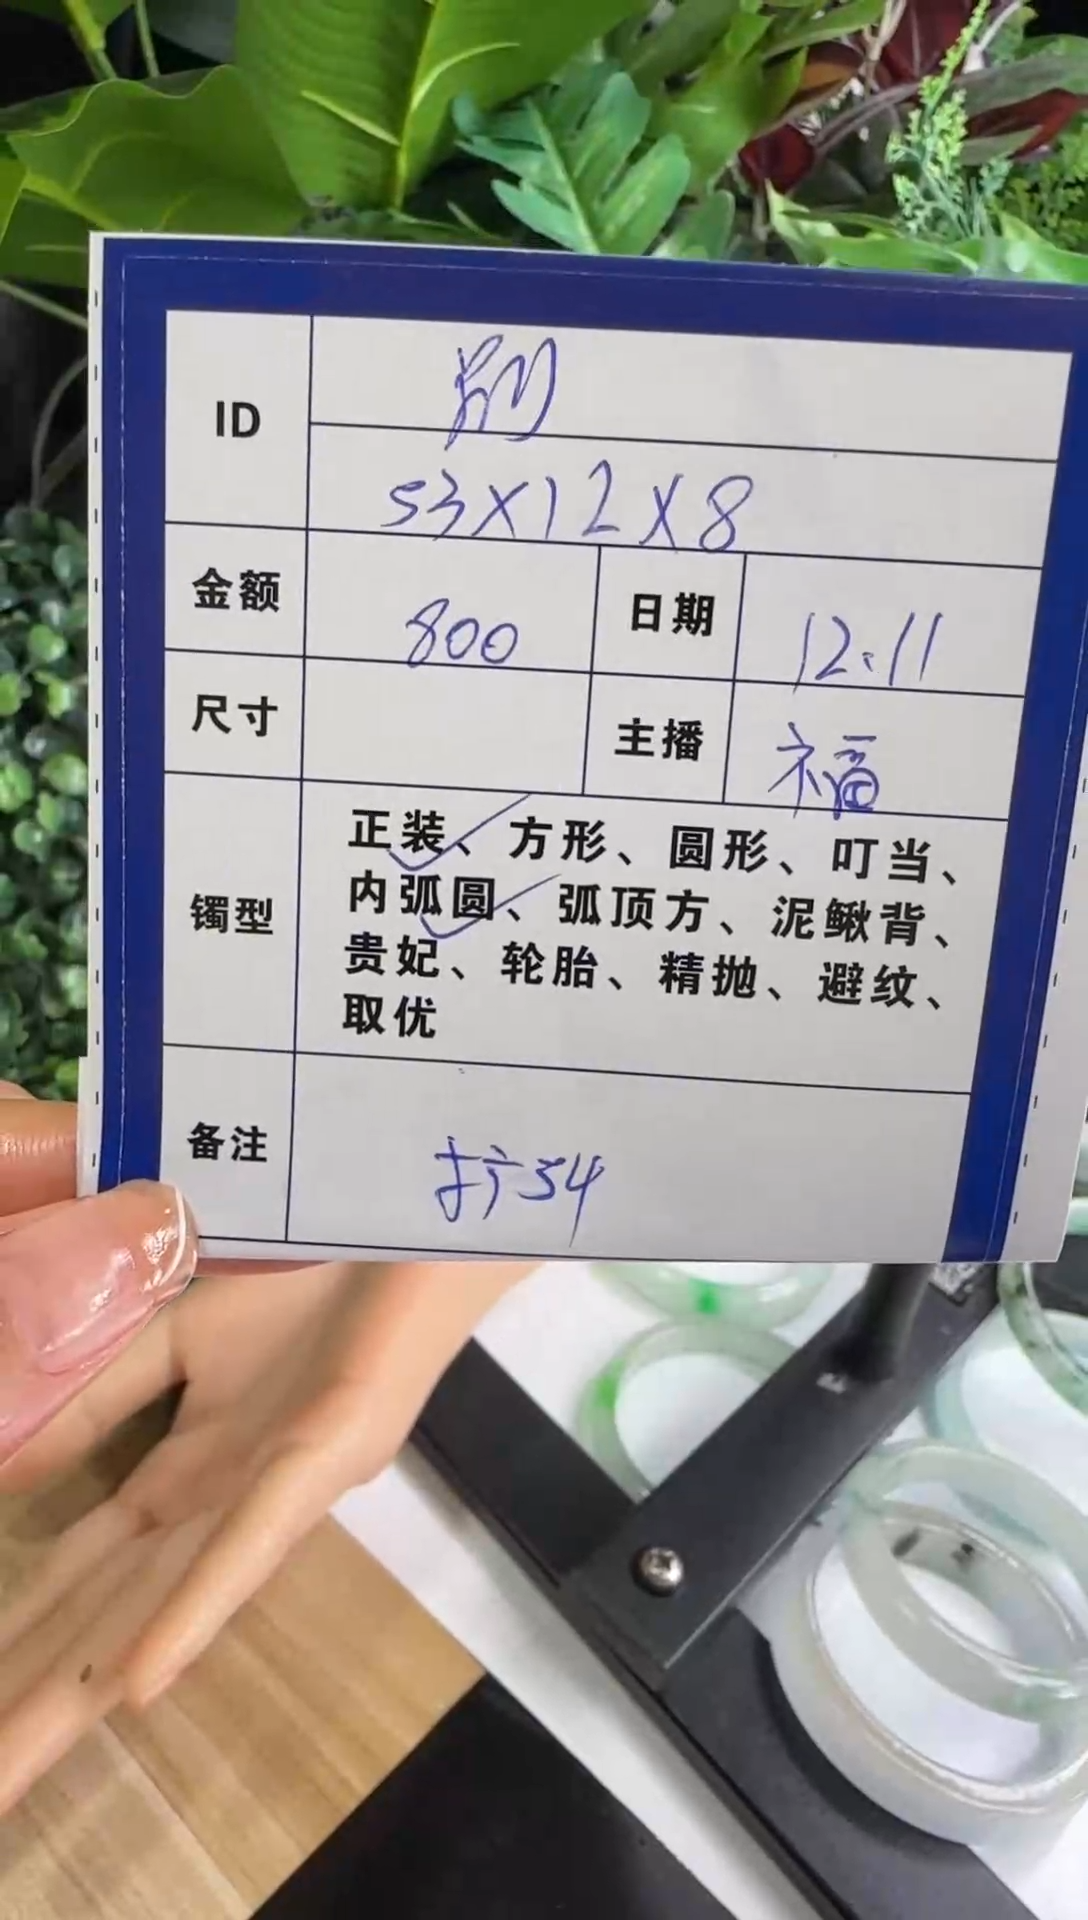 ID
53X12X8
金额 800 日期 12.11
尺寸 主播 福
镯型 正装、方形、圆形、叮当、
内弧圆、弧顶方、泥鳅背、
贵妃、轮胎、精抛、避纹、
取优
备注 扩54